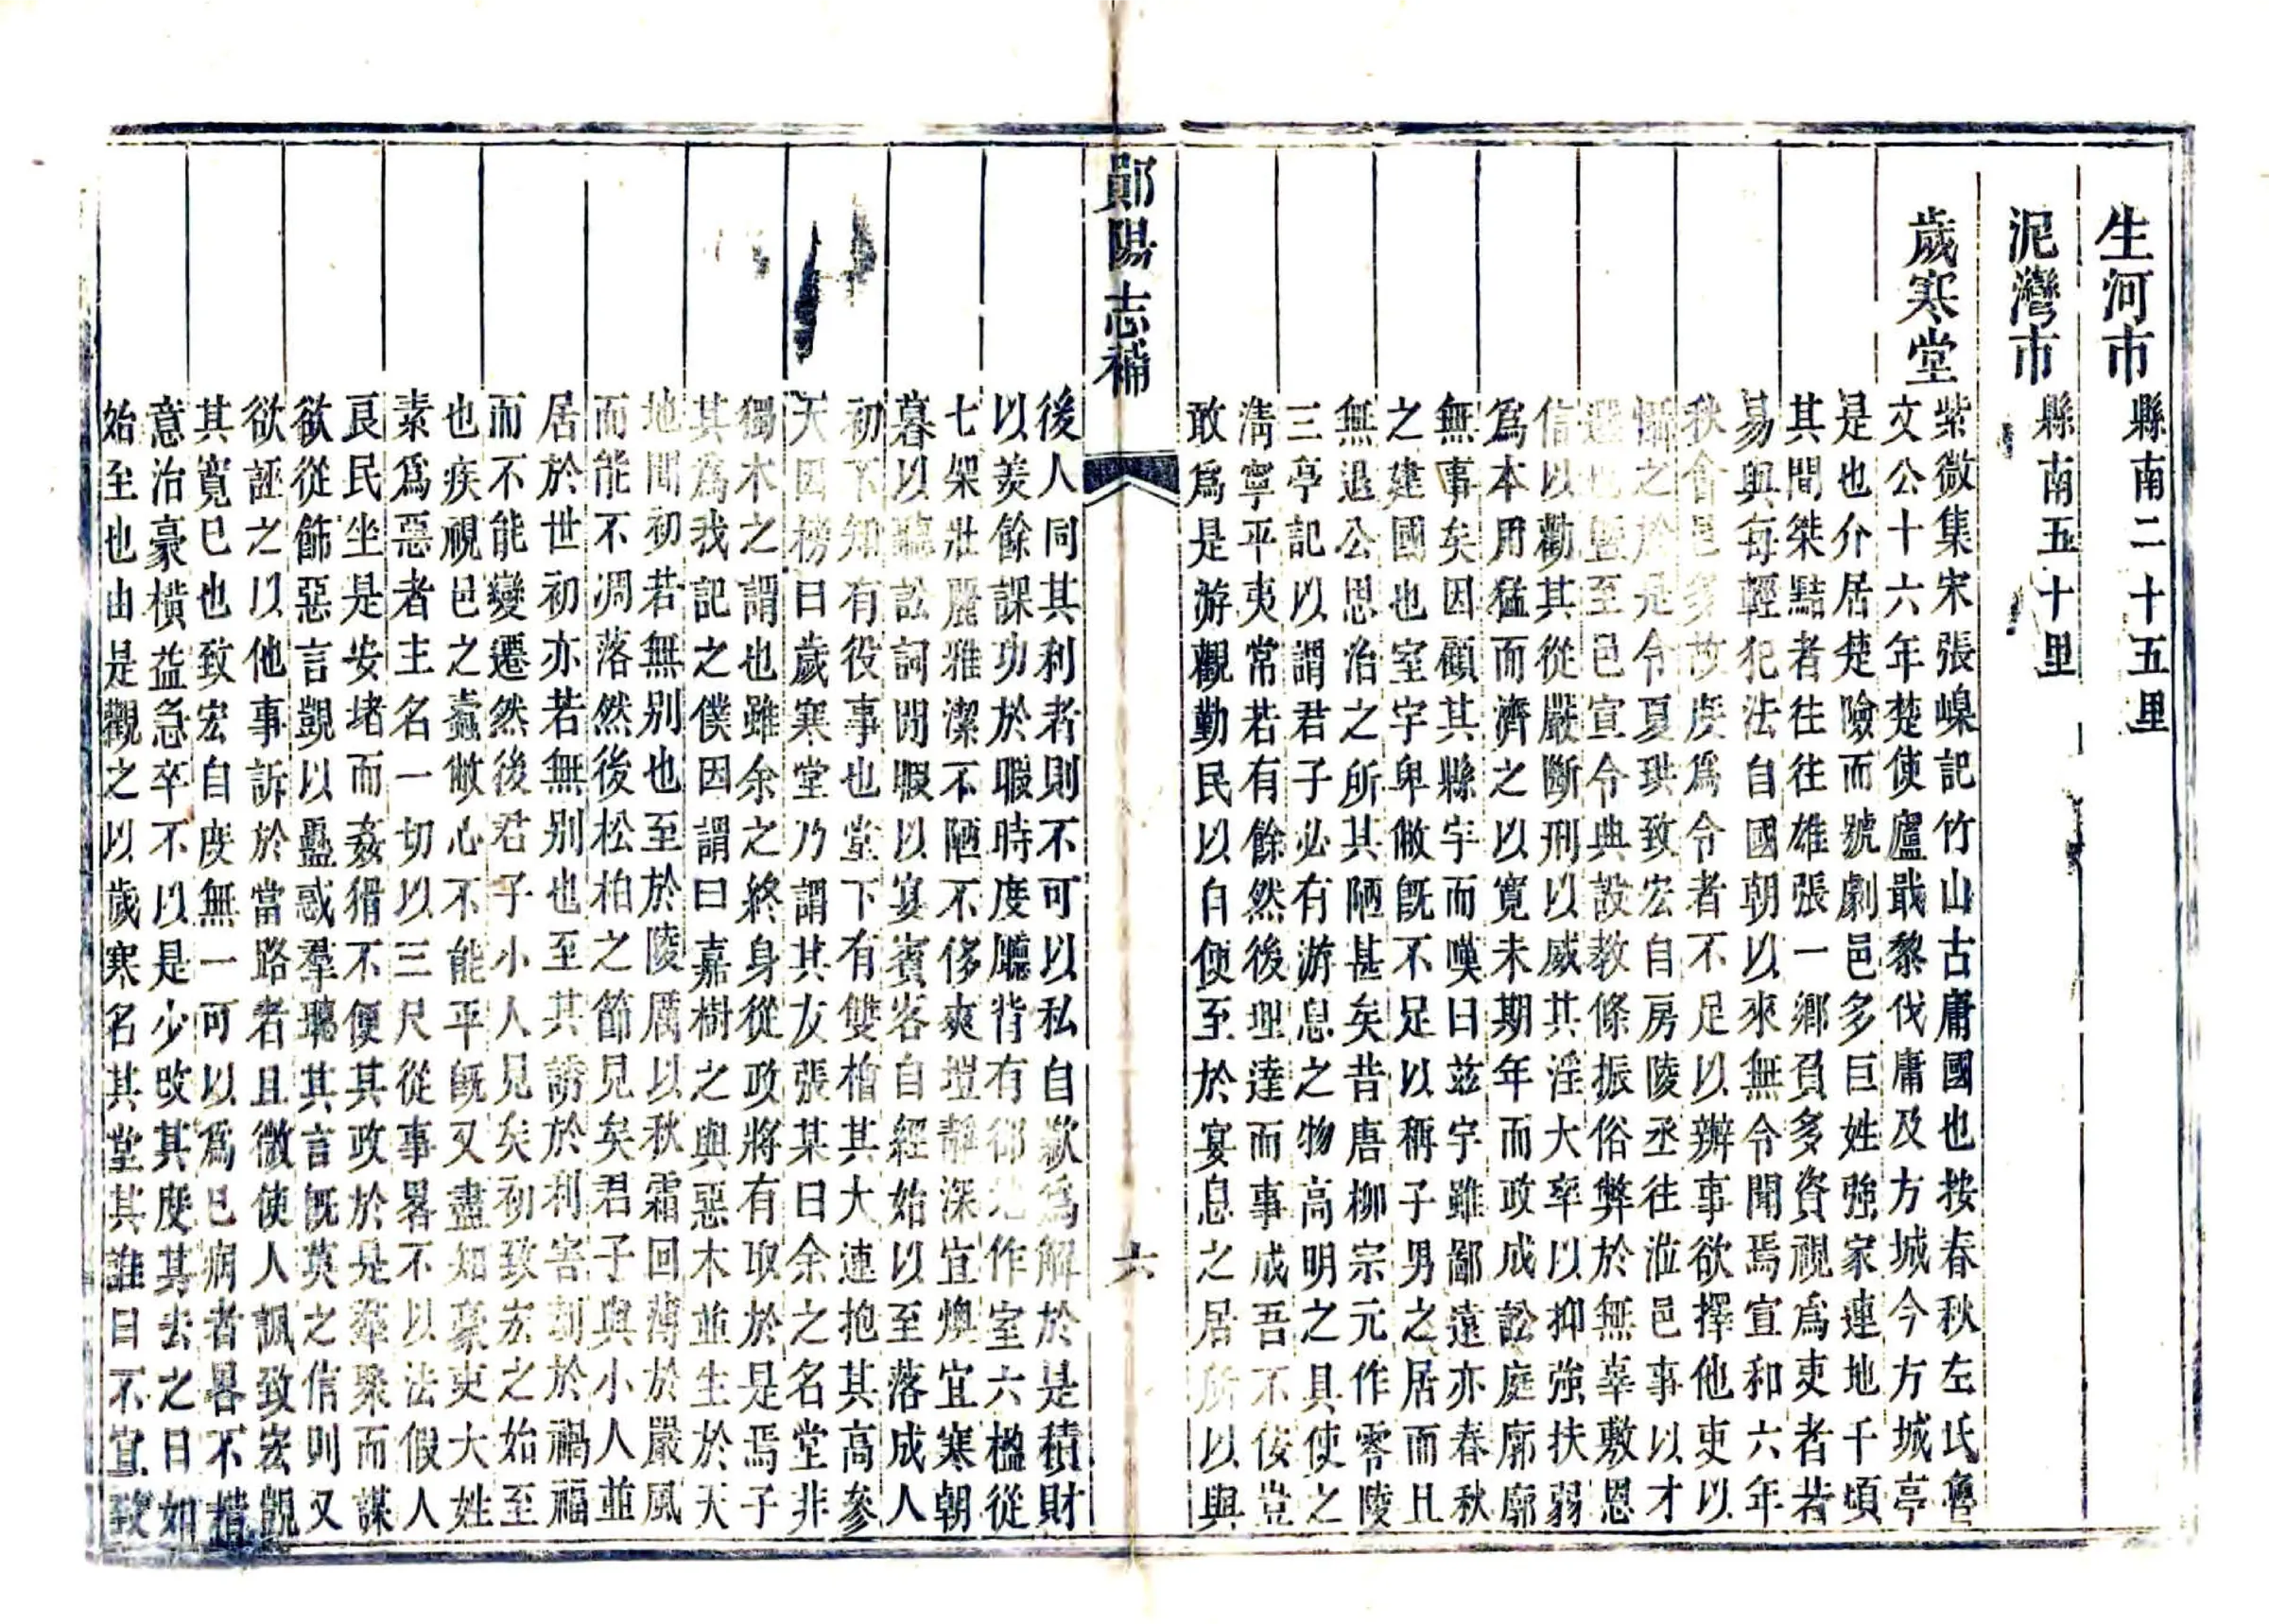 生河市 縣南二十五里
泥灣市 縣南五十里
歲寒堂
紫微集宋張嵲記竹山古庸國也按春秋左氏魯
文公十六年楚使廬戢黎伐庸及方城今方城亭
是也介居楚險而號劇邑多巨姓強家連地千頃
其間桀黠者往往雄張一鄉負多資視爲吏者若
易與每輕犯法自國朝以來無令聞焉宣和六年
秋會邑多故庋爲令者不足以辦事欲擇他吏以
之於是令夏珙致宏自房陵丞往涖邑事以才
選也曁至邑宣令典設教條振俗弊於無辜敷恩
信以勸其從嚴斷刑以威其淫大率以抑強扶弱
爲本用猛而濟之以寬未期年而政成訟庭廓廓
無事矣因顧其縣宇而嘆曰茲宇雖鄙遠亦春秋
之建國也室宇卑敝旣不足以稱子男之居而且
無退公思治之所其陋甚矣昔唐柳宗元作零陵
三亭記以謂君子必有游息之物高明之具使之
淸寧平夷常若有餘然後理達而事成吾不佞豈
敢爲是游觀勤民以自便至於宴息之居所以與
鄖陽志補
六
後人同其利者則不可以私自歉爲解於是積財
以羨餘課功於暇時度廳背有作室六楹從
七架壯麗雅潔不陋不侈爽塏靜深宜燠宜寒朝
暮以聽訟詞閒暇以宴賓客自經始以至落成人
初不知有役事也堂下有雙栢其大連抱其高參
天因榜曰歲寒堂乃謂其友張某曰余之名堂非
獨木之謂也雖余之終身從政將有取於是焉子
其爲我記之僕因謂曰嘉樹之與惡木並生於天
地間初若無别也至於陵厲以秋霜回薄於嚴風
而能不凋落然後松柏之節見矣君子與小人並
居於世初亦若無别也至其誘於利害刦於禍福
而不能變遷然後君子小人見矣初致宏之始至
也疾視邑之蠹敝心不能平旣又盡如豪吏大姓
素爲惡者主名一切以三尺從事畧不以法假人
良民坐是安堵而姦猾不便其政於是羣聚而謀
欲從飾惡言覬以蠱惑羣聽其言旣莫之信則又
欲誣之以他事訴於當路者且微使人諷致宏覬
其寬巳也致宏自度無一可以爲巳病者畧不
意治豪橫益急卒不以是少攺其度其去之日如
始至也由是觀之以歲寒名其堂其誰曰不宜致